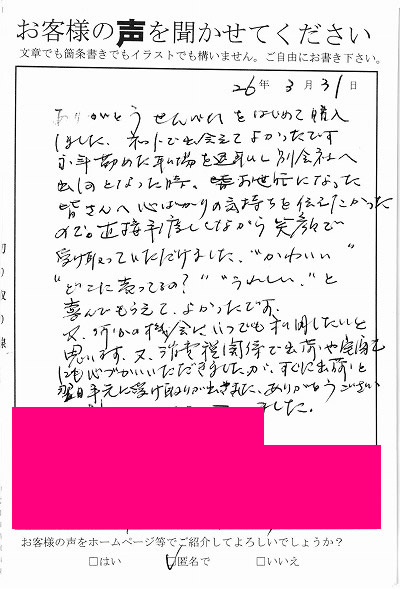 お客様の声を聞かせてください
文章でも箇条書きでもイラストでも構いません。ご自由にお書き下さい。
26年 3月 31日
ありがとうせんべいをはじめて購入
しました。ネットで出会えてよかったです
永年勤めた職場を退職し別会社へ
出向となった時、お世話になった
皆さんへ心ばかりの気持ちを伝えたかった
ので。直接手渡ししながら笑顔で
受け取っていただけました。"かわいい"
"どこに売ってるの?" "うれしい。"と
喜んでもらえて、よかったです。
又、何かの機会にいつでも利用したいと
思います。又、消費税関係で出荷や
にも心づかいいただきましたが、すぐに出荷と
翌日手元に受け取りが出来ました。ありがとうござい
ました。
切り取り線
お客様の声をホームページ等でご紹介してよろしいでしょうか?
□はい ☑匿名で □いいえ